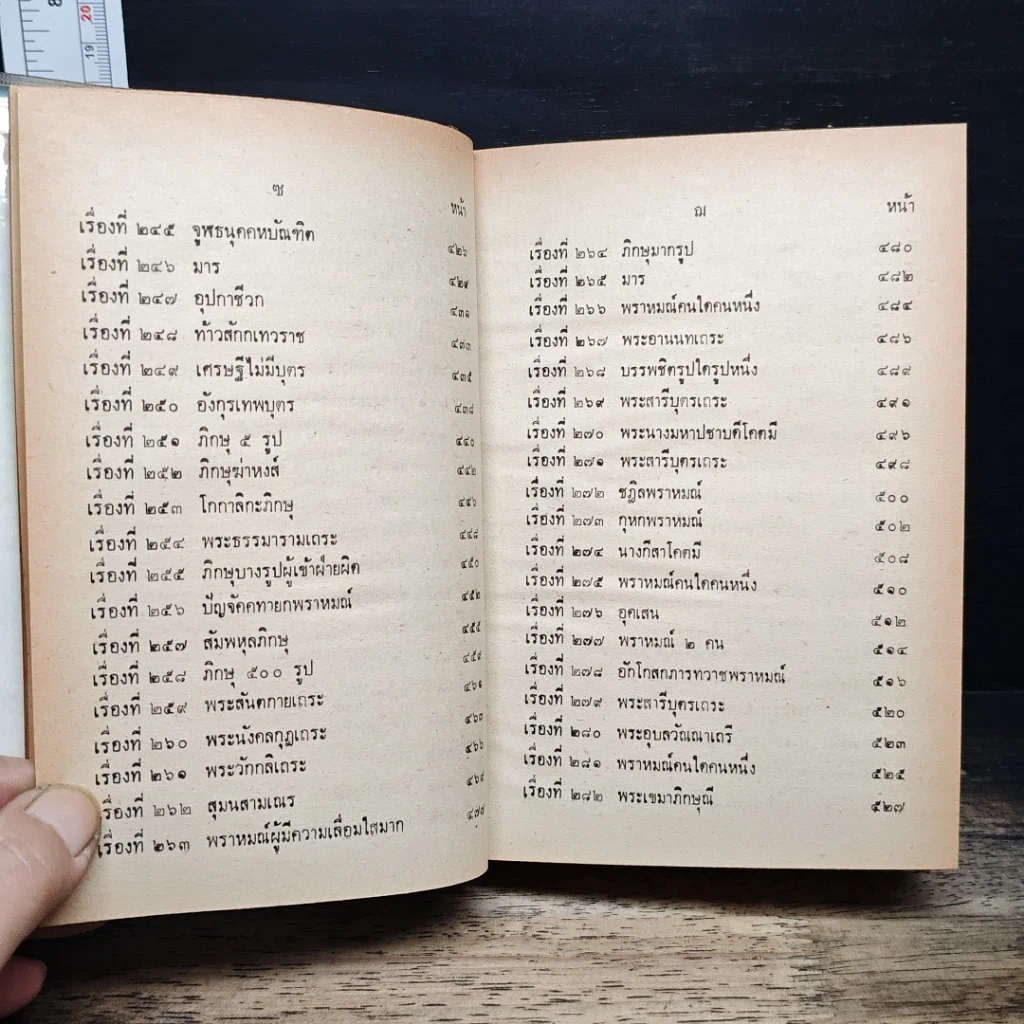 ซ
หน้า
เรื่องที่ ๒๔๕ จูฬธนุคคหบัณฑิต ๔๒๖
เรื่องที่ ๒๔๖ มาร ๔๒๙
เรื่องที่ ๒๔๗ อุปกาชีวก ๔๓๑
เรื่องที่ ๒๔๘ ท้าวสักกเทวราช ๔๓๓
เรื่องที่ ๒๔๙ เศรษฐีไม่มีบุตร ๔๓๕
เรื่องที่ ๒๕๐ อังกุรเทพบุตร ๔๓๘
เรื่องที่ ๒๕๑ ภิกษุ ๕ รูป ๔๔๐
เรื่องที่ ๒๕๒ ภิกษุฆ่าหงส์ ๔๔๒
เรื่องที่ ๒๕๓ โกกาลิกะภิกษุ ๔๔๖
เรื่องที่ ๒๕๔ พระธรรมารามเถระ ๔๔๘
เรื่องที่ ๒๕๕ ภิกษุบางรูปผู้เข้าฝ่ายผิด ๔๕๐
เรื่องที่ ๒๕๖ ปัญจัคคทายกพราหมณ์ ๔๕๒
เรื่องที่ ๒๕๗ สัมพหุลภิกษุ ๔๕๕
เรื่องที่ ๒๕๘ ภิกษุ ๕๐๐ รูป ๔๕๙
เรื่องที่ ๒๕๙ พระสันตกายเถระ ๔๖๑
เรื่องที่ ๒๖๐ พระนังคลกุฏเถระ ๔๖๓
เรื่องที่ ๒๖๑ พระวักกลิเถระ ๔๖๖
เรื่องที่ ๒๖๒ สุมนสามเณร ๔๖๙
เรื่องที่ ๒๖๓ พราหมณ์ผู้มีความเลื่อมใสมาก ๔๗๗
ฌ
หน้า
เรื่องที่ ๒๖๔ ภิกษุมากรูป ๔๘๐
เรื่องที่ ๒๖๕ มาร ๔๘๒
เรื่องที่ ๒๖๖ พราหมณ์คนใดคนหนึ่ง ๔๘๔
เรื่องที่ ๒๖๗ พระอานนทเถระ ๔๘๖
เรื่องที่ ๒๖๘ บรรพชิตรูปใดรูปหนึ่ง ๔๘๙
เรื่องที่ ๒๖๙ พระสารีบุตรเถระ ๔๙๑
เรื่องที่ ๒๗๐ พระนางมหาปชาบดีโคตมี ๔๙๖
เรื่องที่ ๒๗๑ พระสารีบุตรเถระ ๔๙๘
เรื่องที่ ๒๗๒ ชฎิลพราหมณ์ ๕๐๐
เรื่องที่ ๒๗๓ กุหกพราหมณ์ ๕๐๒
เรื่องที่ ๒๗๔ นางกีสาโคตมี ๕๐๘
เรื่องที่ ๒๗๕ พราหมณ์คนใดคนหนึ่ง ๕๑๐
เรื่องที่ ๒๗๖ อุคเสน ๕๑๒
เรื่องที่ ๒๗๗ พราหมณ์ ๒ คน ๕๑๔
เรื่องที่ ๒๗๘ อักโกสกภารทวาชพราหมณ์ ๕๑๖
เรื่องที่ ๒๗๙ พระสารีบุตรเถระ ๕๒๐
เรื่องที่ ๒๘๐ พระอุบลวัณณาเถรี ๕๒๓
เรื่องที่ ๒๘๑ พราหมณ์คนใดคนหนึ่ง ๕๒๕
เรื่องที่ ๒๘๒ พระเขมาภิกษุณี ๕๒๗